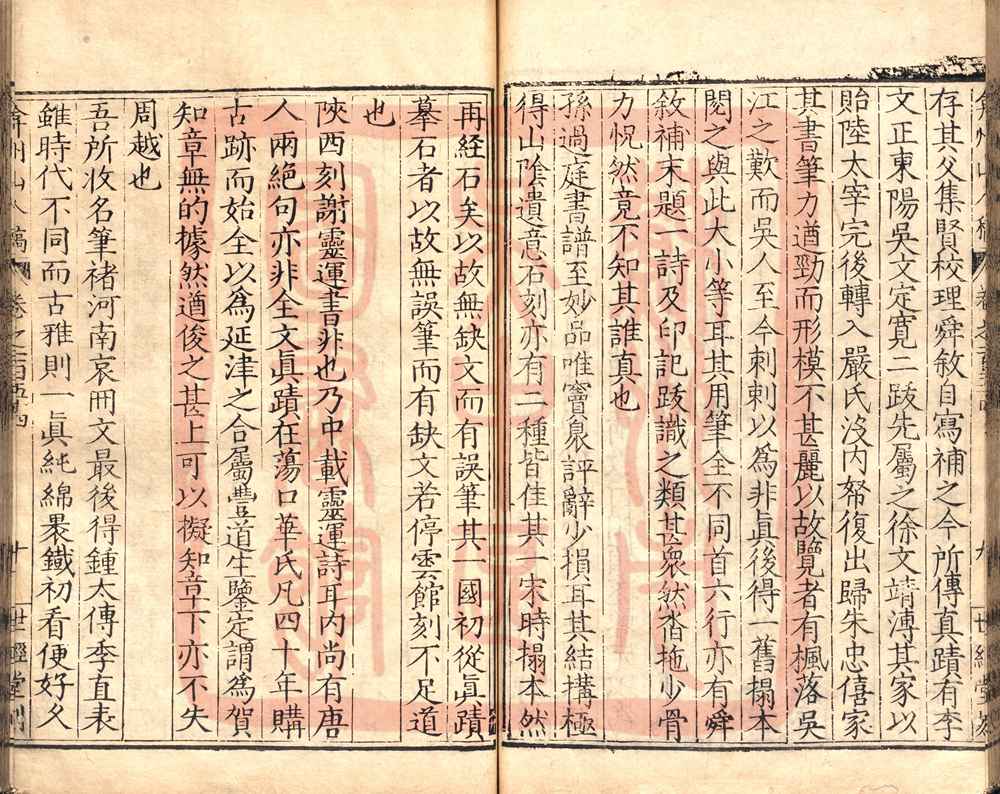 存其父集賢校理舜欽自寫補之今所傳真蹟有李
文正東陽吳文定寬二跋先屬之徐文靖溥其家以
貽陸太宰完後轉入嚴氏沒內帑復出歸朱忠僖家
其書筆力遒勁而形模不甚麗以故覽者有楓落吳
江之歎而吳人至今刺刺以為非真後得一舊搨本
閱之與此大小等耳其用筆全不同首六行亦有舜
欽補末題一詩及印記跋識之類甚眾然沓拖少骨
力怳然竟不知其誰真也
孫過庭書譜至妙品唯竇臮評辭少損耳其結搆極
得山陰遺意石刻亦有二種皆佳其一宋時搨本然
再經石矣以故無缺文而有誤筆其一國初從眞蹟
摹石者以故無誤筆而有缺文若停雲館刻不足道
也
陝西刻謝靈運書非也乃中載靈運詩耳內尚有唐
人兩絕句亦非全文眞蹟在蕩口華氏凡四十年購
古跡而始全以為延津之合屬豐道生鑒定謂為賀
知章無的據然遒俊之甚上可以擬知章下亦不失
周越也
吾所收名筆褚河南哀冊文最後得鍾太傅季直表
雖時代不同而古雅則一眞純綿裹鐵初看便好久
弇州山人稿 卷之一百五十四 十 世經堂刻